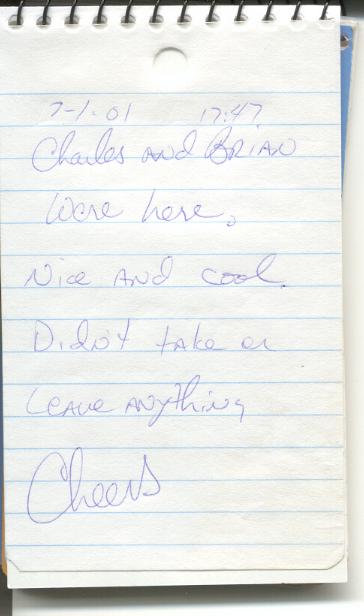 7-1-01 17:47
Charles AND BRIAN
Were here.
Nice AND cool.
Didn't take or
Leave anything
Cheers